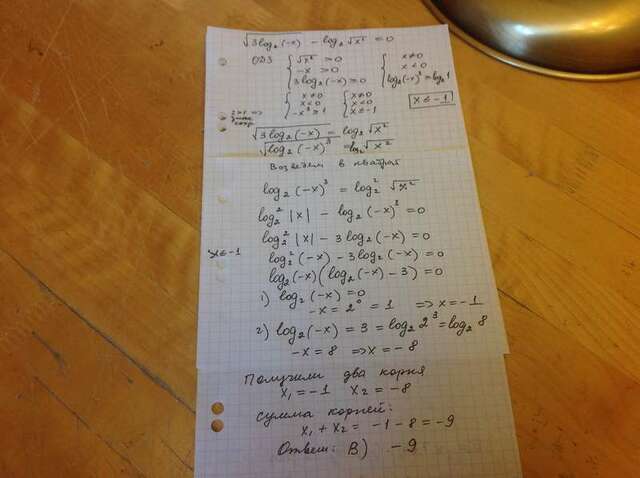 √3log₂(-x) - log₂√x² = 0
ОДЗ { √x² > 0 { x≠0
-x > 0 x < 0
3log₂(-x) ≥ 0 log₂(-x)³ ≥ log₂1
{ x≠0 { x≠0 x ≤ -1
x<0 x<0
-x³ ≥ 1 x ≤ -1
2>1 ⇒
√3log₂(-x) = log₂√x²
√log₂(-x)³ = log₂√x²
Возведем в квадрат
log₂(-x)³ = log₂²√x²
log₂²|x| - log₂(-x)³ = 0
log₂²|x| - 3log₂(-x) = 0
x ≤ -1 log₂²(-x) - 3log₂(-x) = 0
log₂(-x)(log₂(-x) - 3) = 0
1) log₂(-x) = 0
-x = 2⁰ = 1 ⇒ x = -1
2) log₂(-x) = 3 = log₂2³ = log₂8
-x = 8 ⇒ x = -8
Получили два корня
x₁ = -1 x₂ = -8
сумма корней:
x₁ + x₂ = -1 - 8 = -9
Ответ: В) -9